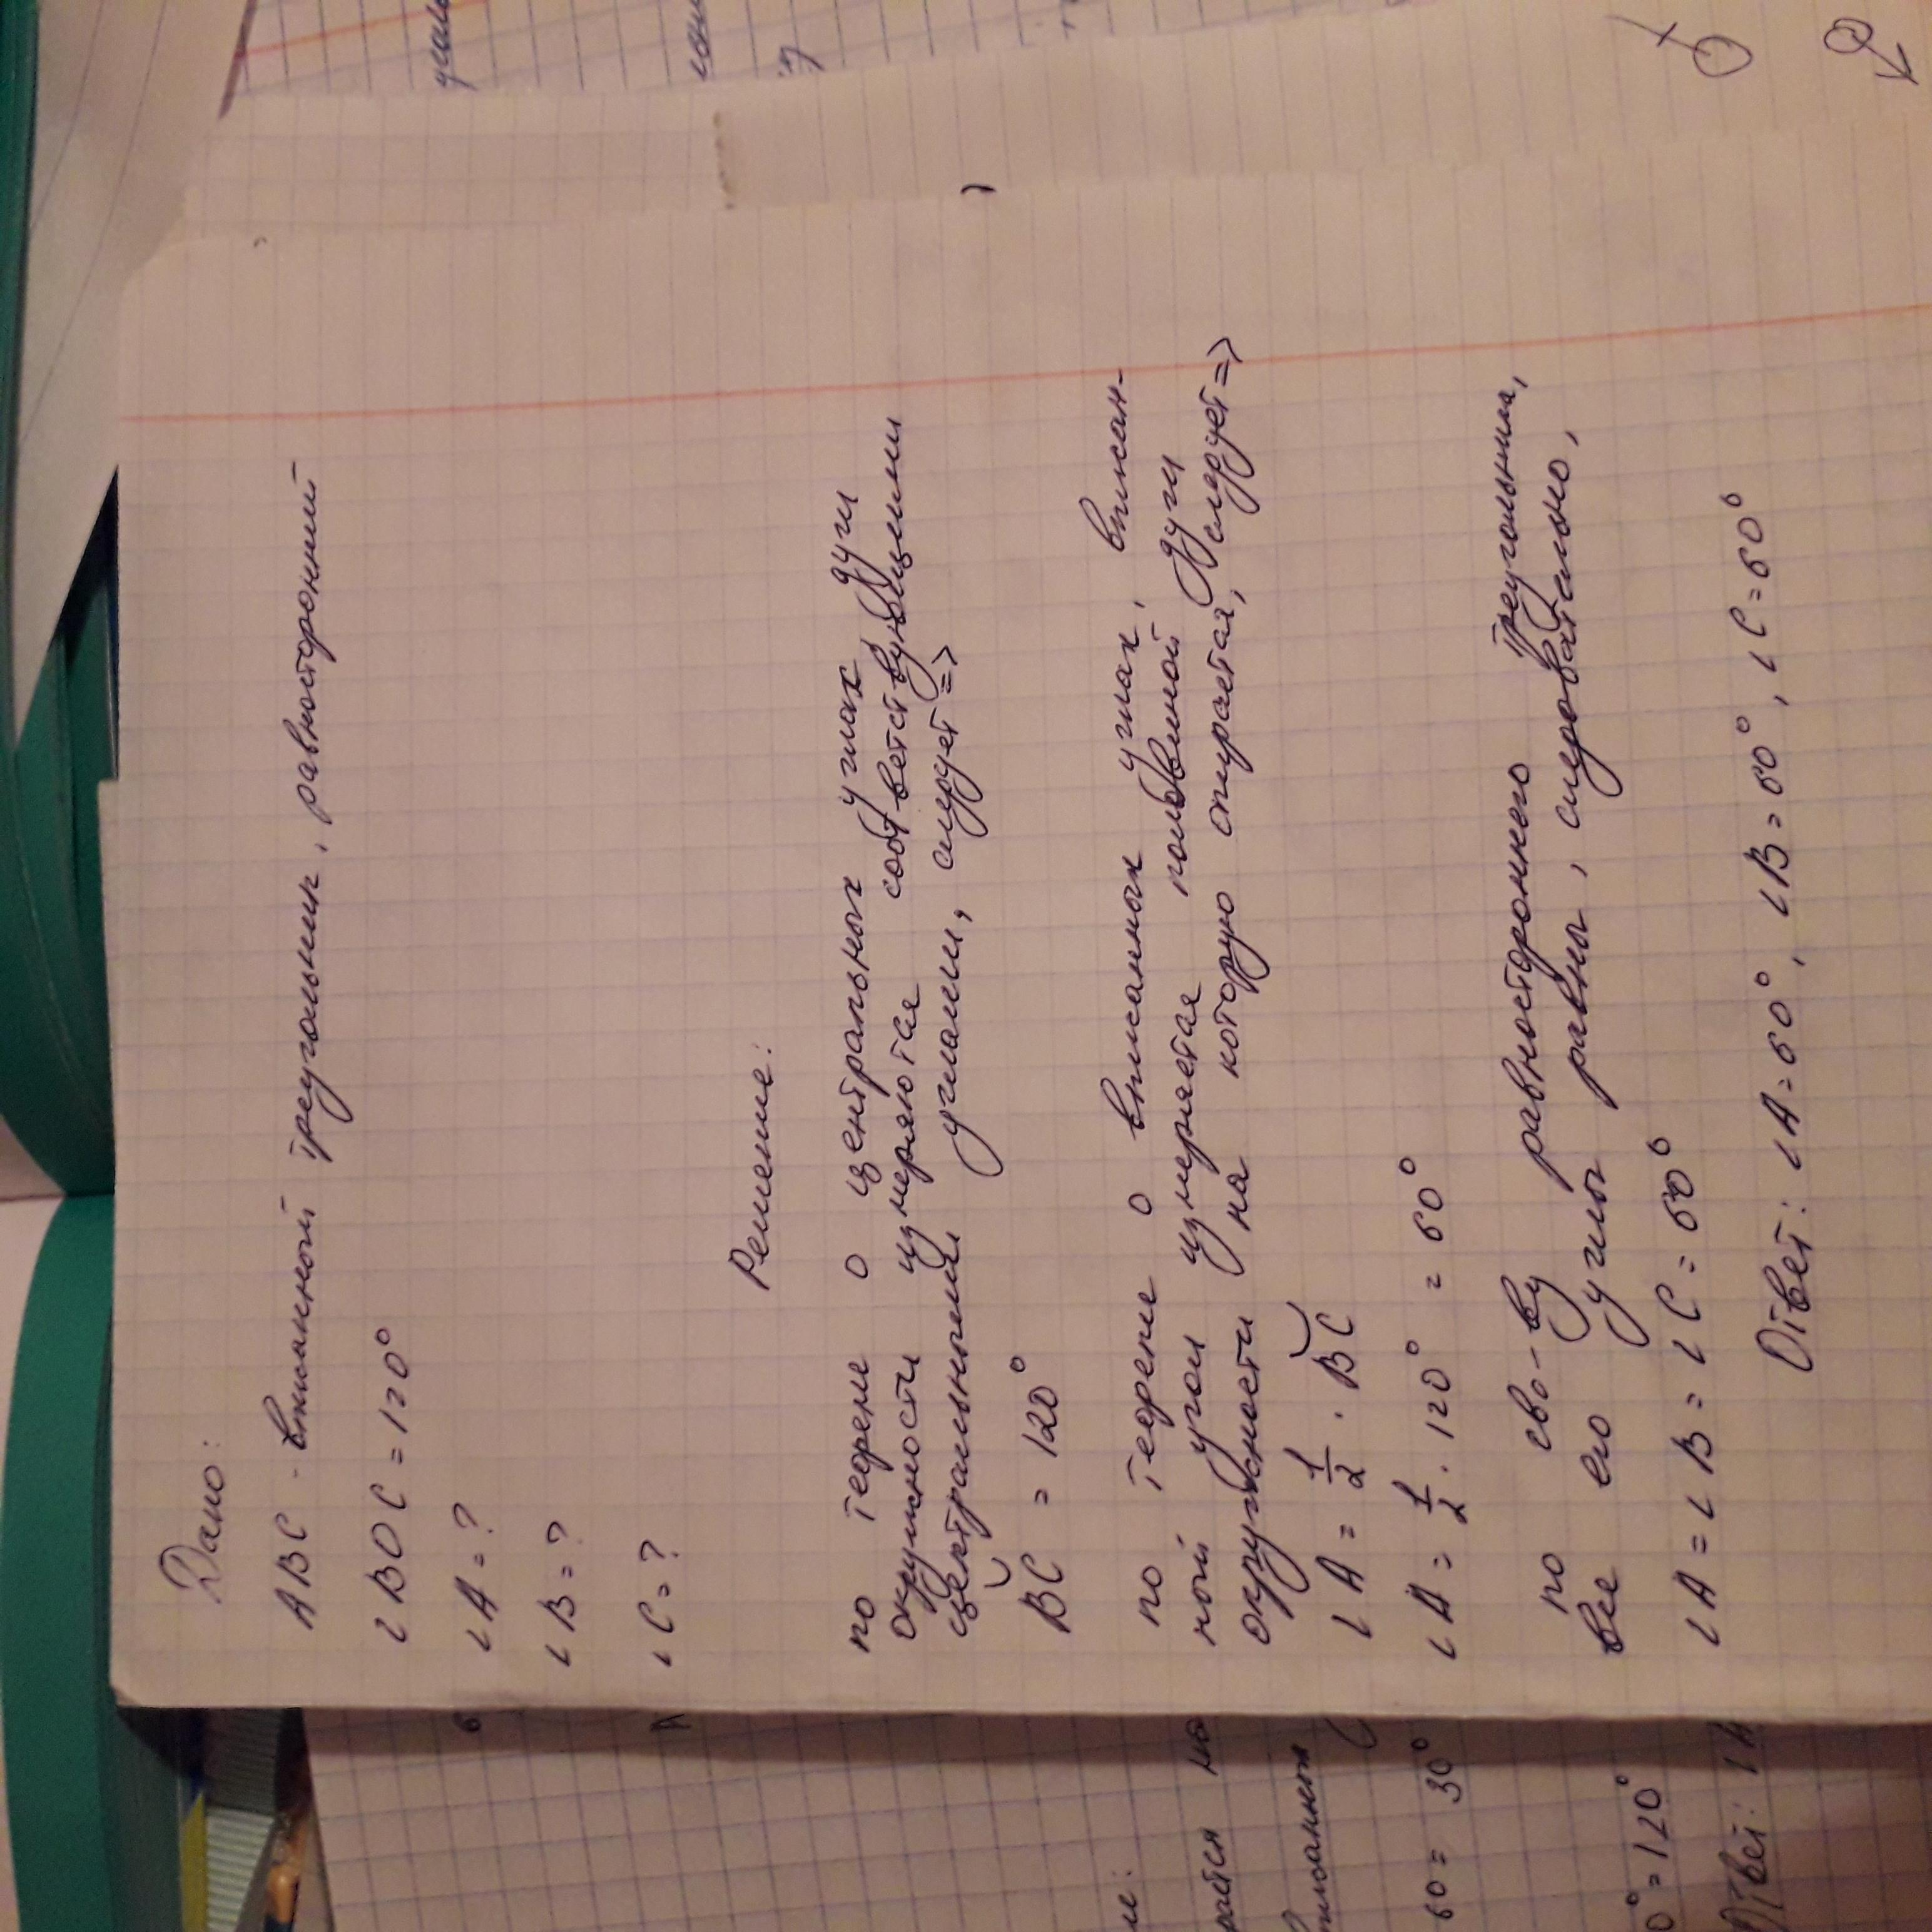 Дано:
ABC - вписанный треугольник, равносторонний
∠BOC = 120°
∠A = ?
∠B = ?
∠C = ?
Решение:
по теореме о центральных углах дуги
окружности измеряются соответствующими
центральными углами, следует =>
BC = 120°
по теореме о вписанных углах, вписан-
ный угол измеряется половиной дуги
окружности на которую опирается, следует =>
∠A = 1/2 · BC
∠A = 1/2 · 120° = 60°
по сво-ву равностороннего треугольника,
все его углы равны, следовательно,
∠A = ∠B = ∠C = 60°
Ответ: ∠A = 60°, ∠B = 60°, ∠C = 60°
60 = 30°
0° = 120°
Ответ: ∠A